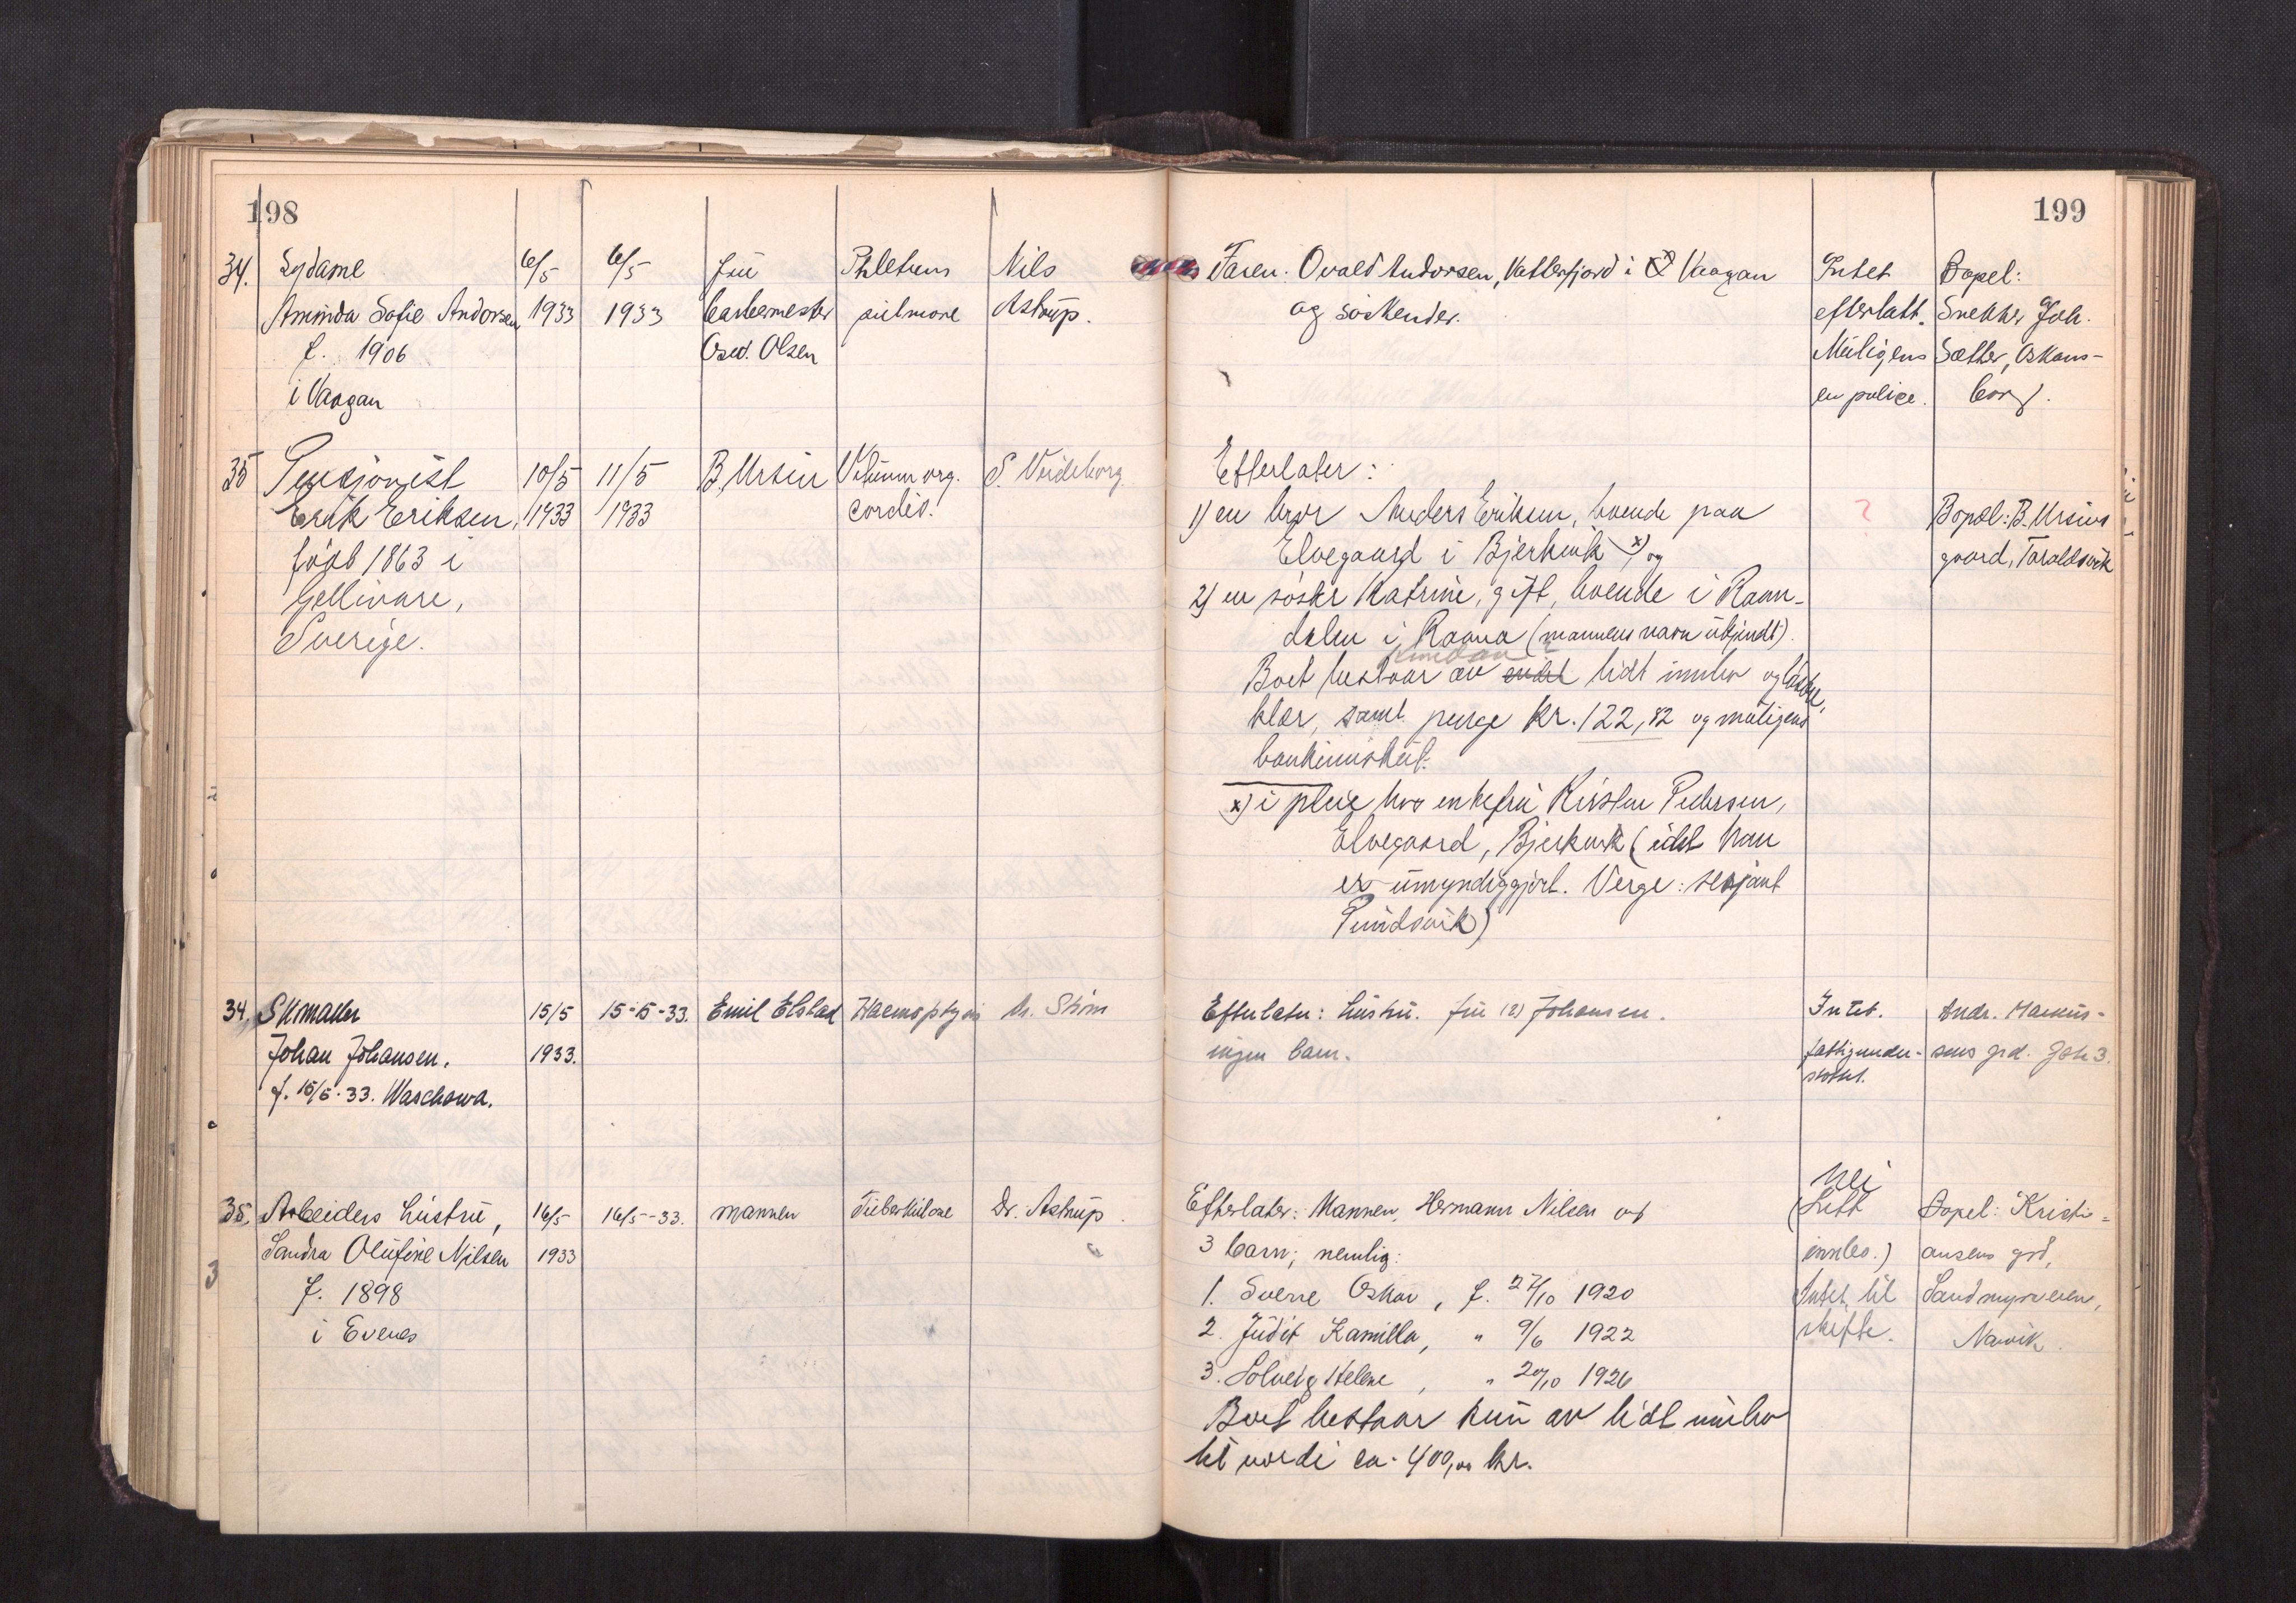 198
199
34. Sydame 6/5 6/5 fru Phletum Nils Faren: Ovald Andorsen, Vatterfjord i Ø Vaagan Intet Bopel:
Aminda Sofie Andorsen 1933 1933 barbermester pulmone Astrup. og søskender. efterlatt. Snekker Joh.
f. 1906 Osv. Olsen Muligens Sætther, Oskars-
i Vaagan en police. borg.
35 Pensjonist 10/5 11/5 B. Ursin Vitium org. Efterlater:
Erik Eriksen, 1933 1933 cordis. 1) en bror Anders Eriksen, boende paa ? Bopæl: B. Ursins
født 1863 i Elvegaard i Bjerkvik x) og gaard, Taraldsvik
Gellivare, 2) en søster Katrine, gift, boende i Raan-
Sverige. dalen i Raana (mannens navn ukjendt).
Boet bestaar av endel lidt innbo og
klær, samt penge kr. 122,82 og muligens
bankinnskut.
x) i pleie hos enkefru Kirsten Pedersen,
Elvegaard, Bjerkvik (idet han
er umyndiggjort. Verge: sersjant
Pundsvik)
34. Skomaker 15/5 15-5-33. Emil Elstad Haemoptysis dr. Strøm Efterlater: hustru. fru (?) Johansen. Intet. Andr. Markus-
Johan Johansen. 1933. ingen barn. fattigunder- sens grd. Gate 3.
f. 15/5-33. Waschawa. støttet.
35. Arbeiders hustru, 16/5 16/5-33. mannen Tuberkulose Dr. Astrup. Efterlater: Mannen, Hermann Nilsen og Nei (Litt Bopel: Kristi-
Sandra Olufine Nilsen 1933 3 barn; nemlig: innbo.) ansens grd,
f. 1898 1. Sverre Oskar, f. 27/10 1920 Intet til Sandmyrveien,
i Evenes 2. Judit Kamilla, " 9/6 1922 skifte. Narvik.
3. Solveig Helene, " 20/10 1926
Boet bestaar kun av lidt innbo
til verdi ca. 400,00 kr.